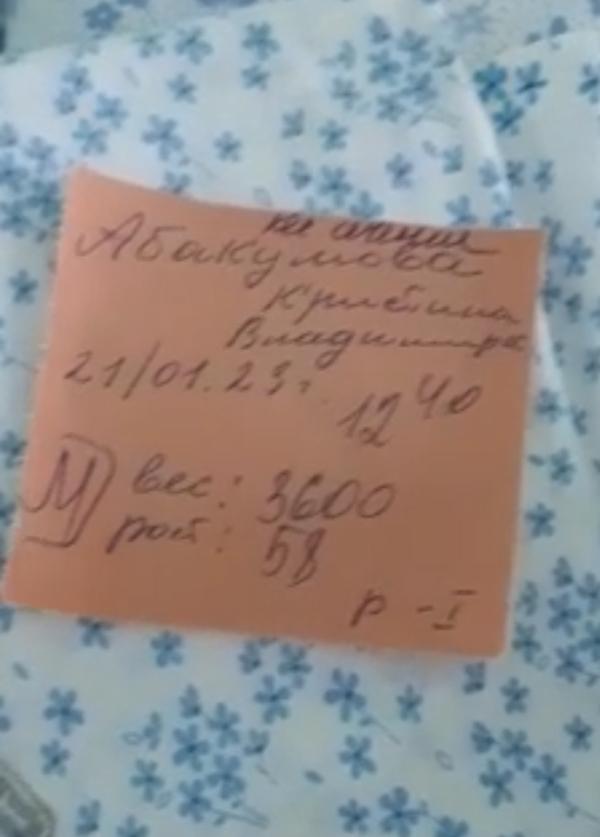 Абакумова
Кристина
Владимиро
21/01.23г.
12 40
М
вес: 3600
рост: 58
р - I